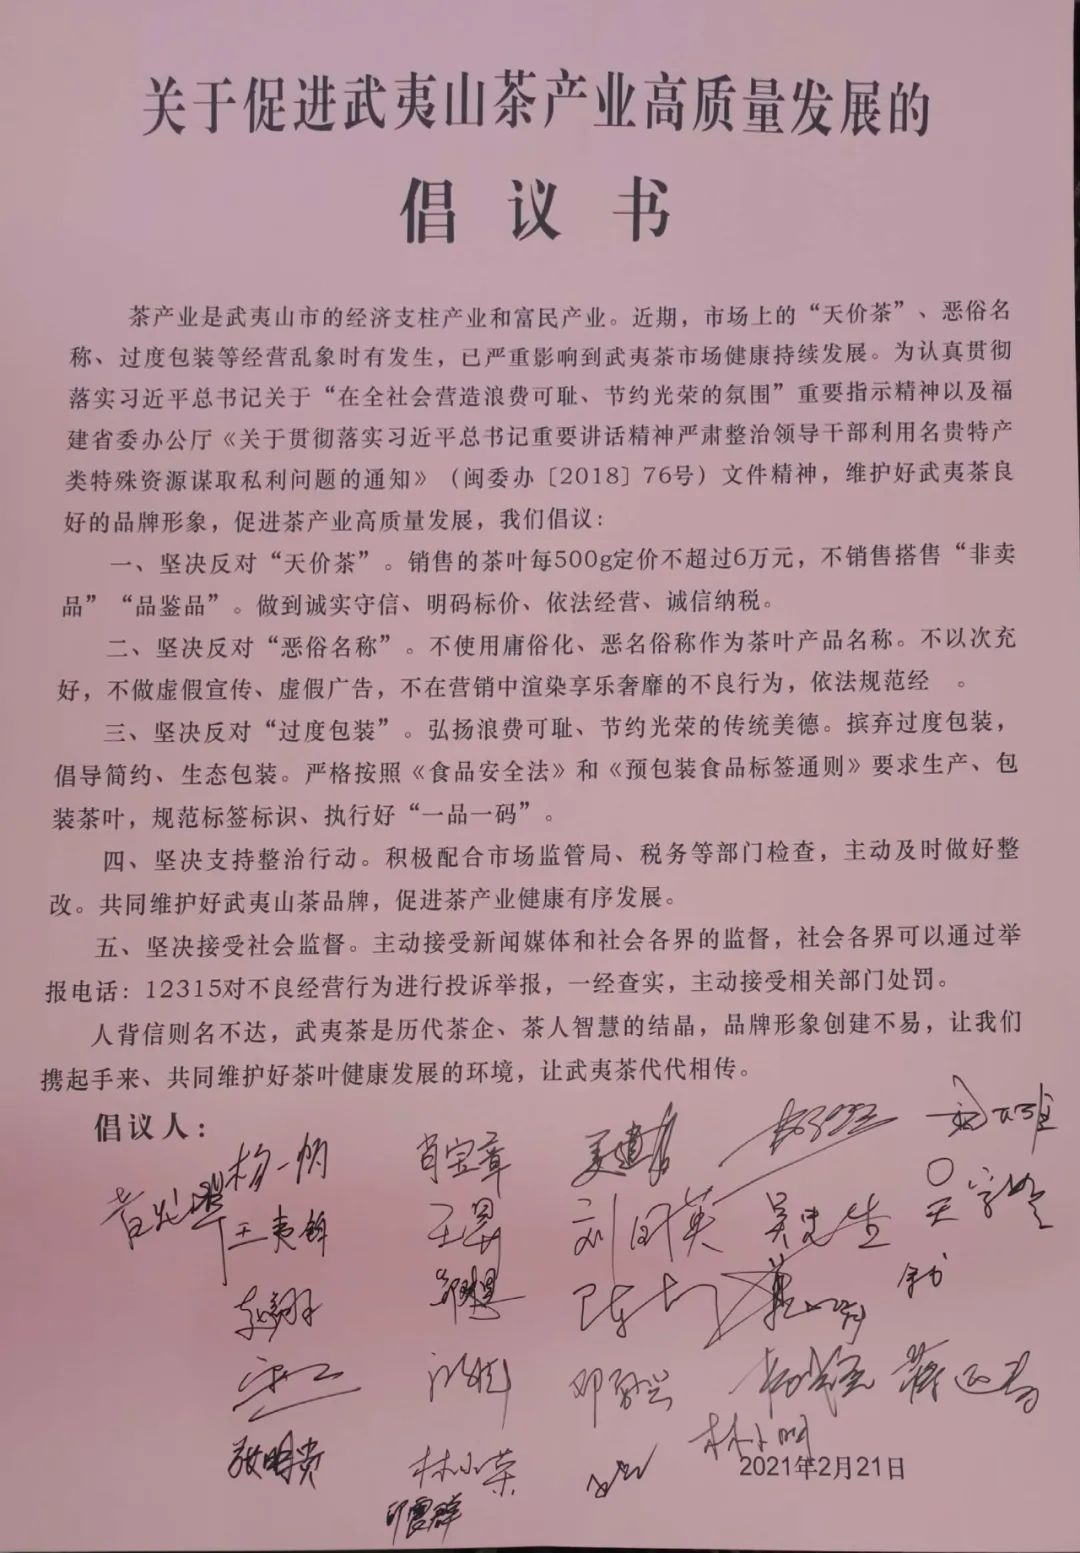 关于促进武夷山茶产业高质量发展的
倡议书
茶产业是武夷山市的经济支柱产业和富民产业。近期，市场上的“天价茶”、恶俗名
称、过度包装等经营乱象时有发生，已严重影响到武夷茶市场健康持续发展。为认真贯彻
落实习近平总书记关于“在全社会营造浪费可耻、节约光荣的氛围”重要指示精神以及福
建省委办公厅《关于贯彻落实习近平总书记重要讲话精神严肃整治领导干部利用名贵特产
类特殊资源谋取私利问题的通知》（闽委办〔2018〕76号）文件精神，维护好武夷茶良
好的品牌形象，促进茶产业高质量发展，我们倡议：
一、坚决反对“天价茶”。销售的茶叶每500g定价不超过6万元，不销售搭售“非卖
品”“品鉴品”。做到诚实守信、明码标价、依法经营、诚信纳税。
二、坚决反对“恶俗名称”。不使用庸俗化、恶名俗称作为茶叶产品名称。不以次充
好，不做虚假宣传、虚假广告，不在营销中渲染享乐奢靡的不良行为，依法规范经 。
三、坚决反对“过度包装”。弘扬浪费可耻、节约光荣的传统美德。摈弃过度包装，
倡导简约、生态包装。严格按照《食品安全法》和《预包装食品标签通则》要求生产、包
装茶叶，规范标签标识、执行好“一品一码”。
四、坚决支持整治行动。积极配合市场监管局、税务等部门检查，主动及时做好整
改。共同维护好武夷山茶品牌，促进茶产业健康有序发展。
五、坚决接受社会监督。主动接受新闻媒体和社会各界的监督，社会各界可以通过举
报电话：12315对不良经营行为进行投诉举报，一经查实，主动接受相关部门处罚。
人背信则名不达，武夷茶是历代茶企、茶人智慧的结晶，品牌形象创建不易，让我们
携起手来、共同维护好茶叶健康发展的环境，让武夷茶代代相传。
倡议人：
杨一帆 肖宝章
王昃 刘国英
林小荣
2021年2月21日